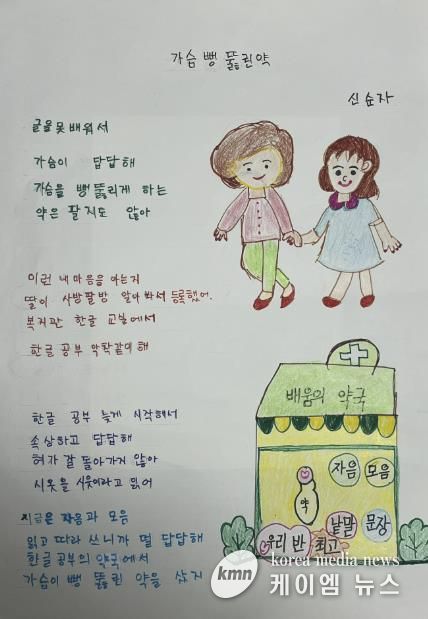 가슴 뻥 뚫린약
신순자
글을 못 배워서
가슴이 답답해
가슴을 뻥 뚫리게 하는
약은 팔지도 않아
이런 내마음을 아는지
딸이 사방팔방 알아봐서 등록했어.
복지관 한글 교실에서
한글 공부 악착같이 해
한글 공부 늦게 시작해서
속상하고 답답해
혀가 잘 돌아가지 않아
시옷을 시옷이라고 읽어
지금은 자음과 모음
읽고 따라 쓰니까 덜 답답해
한글공부의 약국에서
가슴이 뻥 뚫린 약을 샀지
배움의 약국
자음 모음
약
낱말 문장
우리 반 최고
korea media news
kmn 케이엠 뉴스